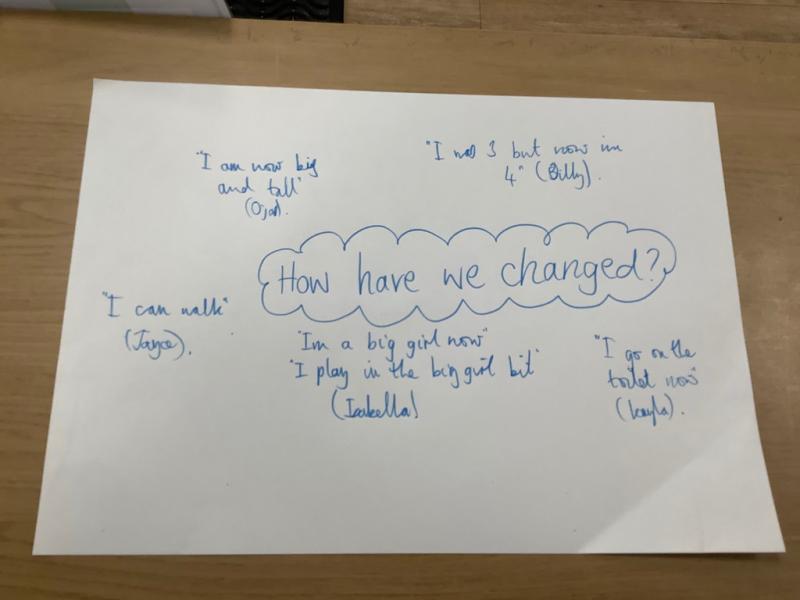 "I am now big
and tall"
"I was 3 but now im
4" (Billy).
How have we changed?
"I can walk"
(Jayce).
"Im a big girl now"
"I play in the big girl bit"
(Isabella)
"I go on the
toilet now"
(Kayla).